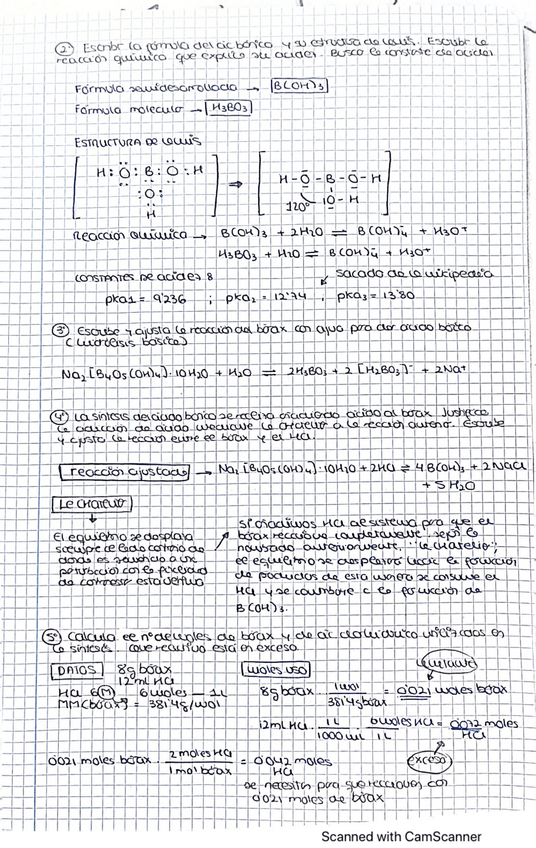 ② Escribir la fórmula del ác bórico y su estructura de Lewis. Escribir la
reacción química que explica su acidez. Busca la constante de acidez
Fórmula semidesarrollada → B(OH)3
Fórmula molecular → H3BO3
ESTRUCTURA DE LEWIS
H : O : B : O : H
: O :
H
⇒
H - O - B - O - H
120° |O - H
Reacción química → B(OH)3 + 2H2O ⇌ B(OH)4⁻ + H3O+
H3BO3 + H2O ⇌ B(OH)4⁻ + H3O+
CONSTANTES DE ACIDEZ
sacado de la wikipedia
pka1 = 9'236 ; pka2 = 12'74 , pka3 = 13'80
③ Escribe y ajusta la reacción del bórax con agua para dar ácido bórico
(hidrólisis básica)
Na2[B4O5(OH)4]·10H2O + H2O ⇌ 2H3BO3 + 2[H2BO3]⁻ + 2Na+
④ La síntesis del ácido bórico se realiza añadiendo ácido al bórax. Justifica
la adición de ácido mediante le chatelier a la reacción anterior. Escribe
y ajusta la reacción entre el bórax y el HCl.
reacción ajustada → Na2[B4O5(OH)4]·10H2O + 2HCl ⇌ 4B(OH)3 + 2NaCl
+ 5H2O
LE CHATELIER
El equilibrio se desplaza
siempre
Si añadimos HCl al sistema para que el
bórax reaccione completamente, según lo
anteriormente, "le chatelier",
el equilibrio se desplazará hacia la formación
de productos de esta manera se consume el
HCl y se contribuye a la formación de
B(OH)3.
⑤ Calcula el nº de moles de bórax y de ác clorhídrico utilizados en
la síntesis. Que reactivo está en exceso
DATOS
8g bórax
12ml HCl
HCl 6M 6 moles — 1L
MM(bórax) = 381'4g/mol
MOLES USO
limitante
8g bórax · 1mol / 381'4g bórax = 0'021 moles bórax
12ml HCl · 1L / 1000ml · 6moles HCl / 1L = 0'072 moles HCl
exceso
0'021 moles bórax · 2 moles HCl / 1 mol bórax = 0'042 moles HCl
se necesitan para que reaccionen con
0'021 moles de bórax
Scanned with CamScanner